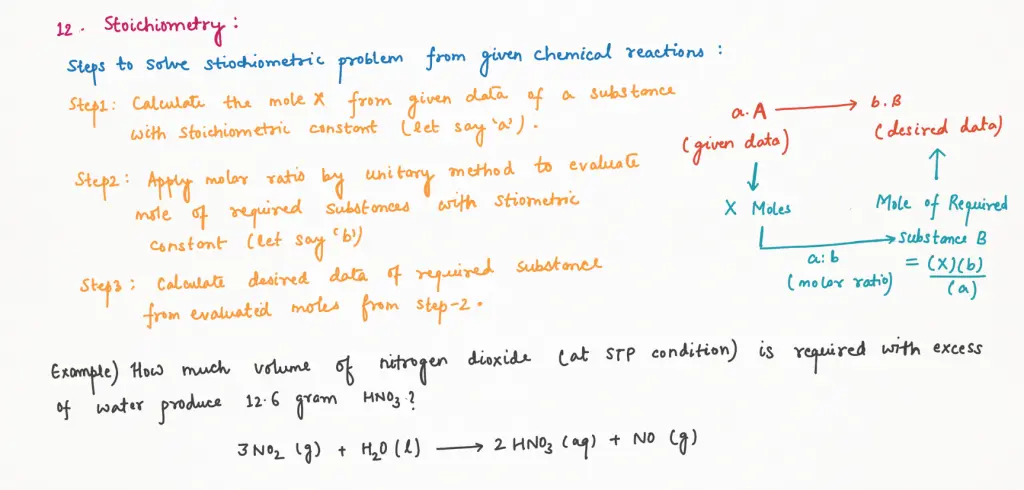 12. Stoichiometry :
Steps to solve stiochiometric problem from given chemical reactions :
Step1: Calculate the mole X from given data of a substance
with stoichiometric constant (let say 'a').
Step2: Apply molar ratio by unitary method to evaluate
mole of required substances with stiometric
constant (let say 'b')
Step3: Calculate desired data of required substance
from evaluated moles from step-2.
a.A → b.B
(given data) (desired data)
X Moles
Mole of Required
substance B
= (X)(b)
(a)
a:b
(molar ratio)
Example) How much volume of nitrogen dioxide (at STP condition) is required with excess
of water produce 12.6 gram HNO₃?
3NO₂ (g) + H₂O (l) → 2 HNO₃ (aq) + NO (g)